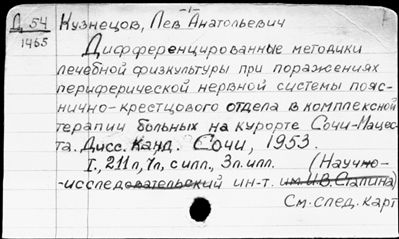 Д 54
1465
-1-
Кузнецов, Лев Анатольевич
Дифференцированные методики
лечебной физкультуры при поражениях
периферической нервной системы пояс-
нично-крестцового отдела в комплексной
терапии больных на курорте Сочи-Мацес-
та. Дисс. Канд. Сочи, 1953.
I., 211л, 7л, с илл., 3л. илл. (Научно-
-исследовательский ин-т. им. И.В. Сталина)
См. след. карт